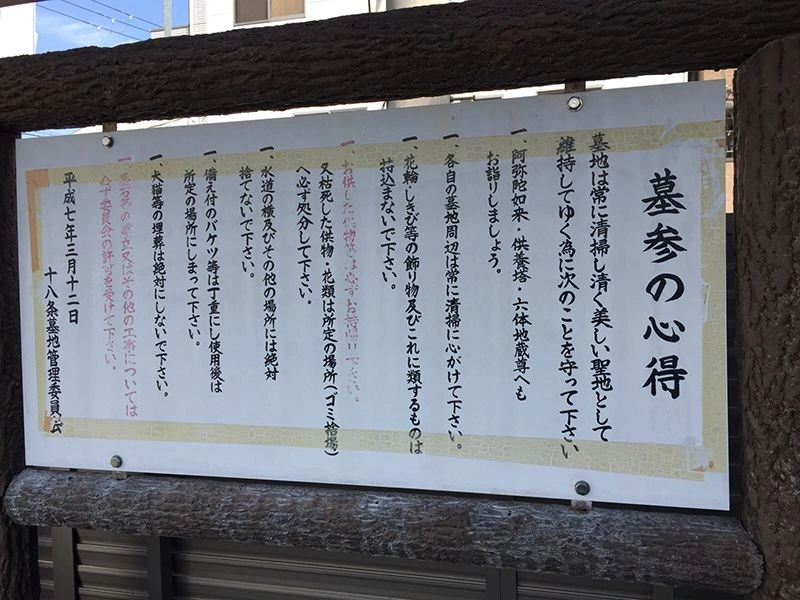 墓参の心得
墓地は常に清掃し清く美しい聖地として
維持してゆく為に次のことを守って下さい
一、阿弥陀如来・供養塔・六体地蔵尊へも
お詣りしましょう。
一、各自の墓地周辺は常に清掃に心がけて下さい。
一、花輪しきび等の飾り物及びこれに類するものは
持込まないで下さい。
一、お供した供物等は必ずお持帰り下さい。
又枯死した供物・花類は所定の場所(ゴミ捨場)
へ必ず処分して下さい。
一、水道の横及びその他の場所には絶対
捨てないで下さい。
一、備え付のバケツ等は丁重にし使用後は
所定の場所にしまって下さい。
一、犬猫等の埋葬は絶対にしないで下さい。
一、墓石等の建立又はその他の工事については
必ず委員会の許可を受けて下さい。
平成七年三月十二日
十八条墓地管理委員会